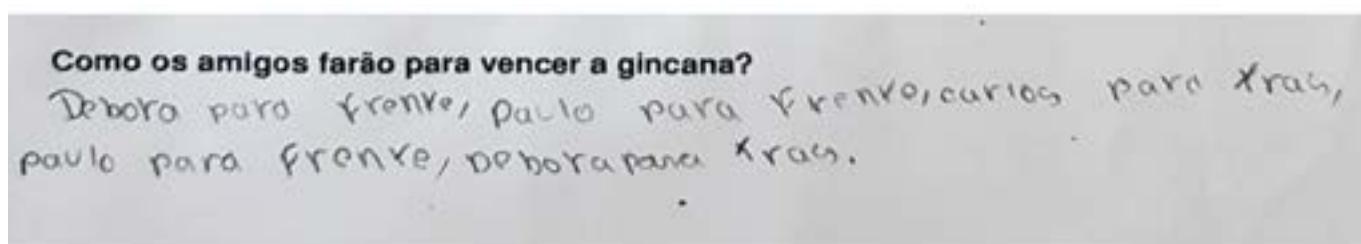 Como os amigos farão para vencer a gincana?
Debora para frente, paulo para frente, carlos para tras,
paulo para frente, Debora para tras.